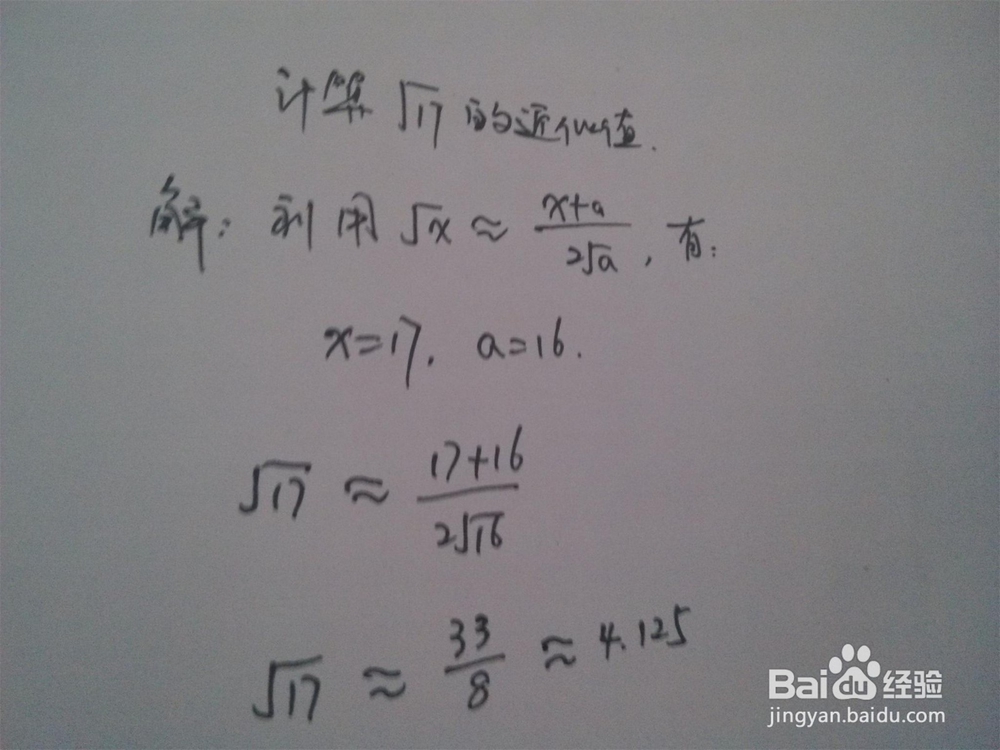 计算√17的近似值.
解: 利用√x ≈ (x+a)/(2√a), 有:
x=17, a=16.
√17 ≈ (17+16)/(2√16)
√17 ≈ 33/8 ≈ 4.125
Baidu 经验
jingyan.baidu.com